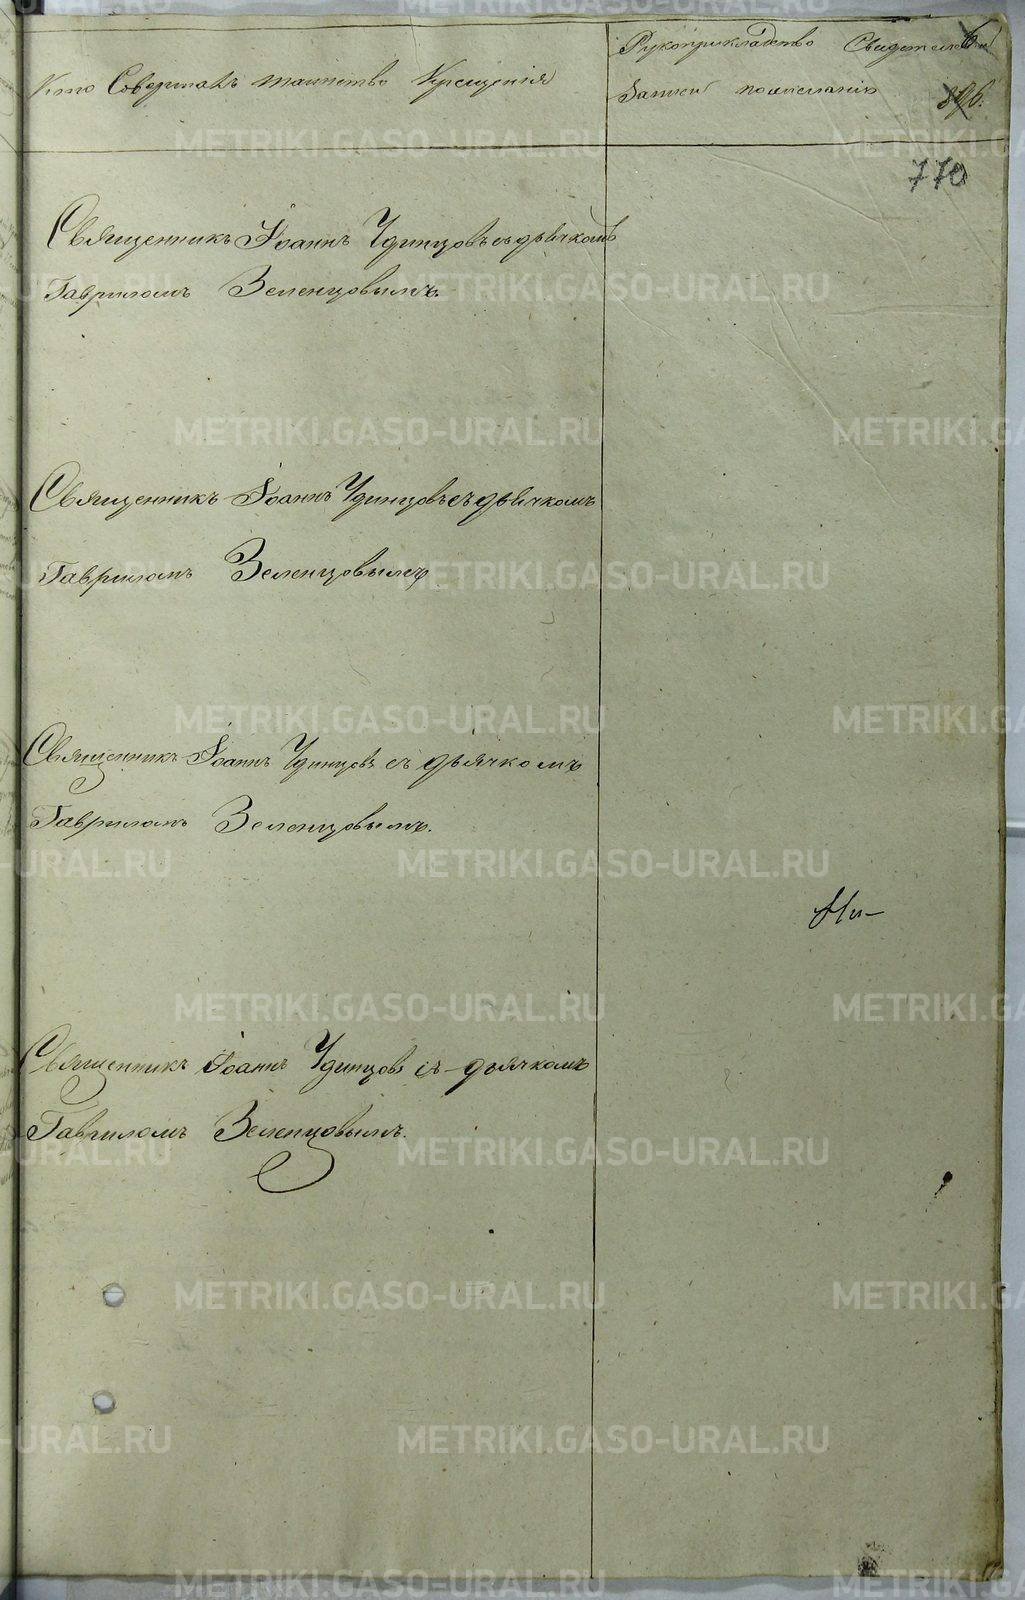 Кто Совершалъ таинство Крещенія
Рукоприкладство Свидетелей
записи по желанію
6
896.
770
Священникъ Іоаннъ Удинцовъ съ дьячкомъ
Гавриломъ Зеленцовымъ.
Священникъ Іоаннъ Удинцовъ съ дьячкомъ
Гавриломъ Зеленцовымъ
Священникъ Іоаннъ Удинцовъ съ дьячкомъ
Гавриломъ Зеленцовымъ.
Священникъ Іоаннъ Удинцовъ съ дьячкомъ
Гавриломъ Зеленцовымъ.
METRIKI.GASO-URAL.RU